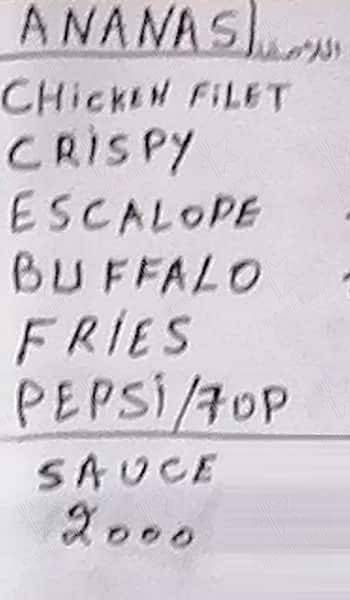 ANANAS
CHiCKEN FiLET
CRiSPY
ESCALOPE
BUFFALO
FRiES
PEPSi/7UP
SAUCE
2000